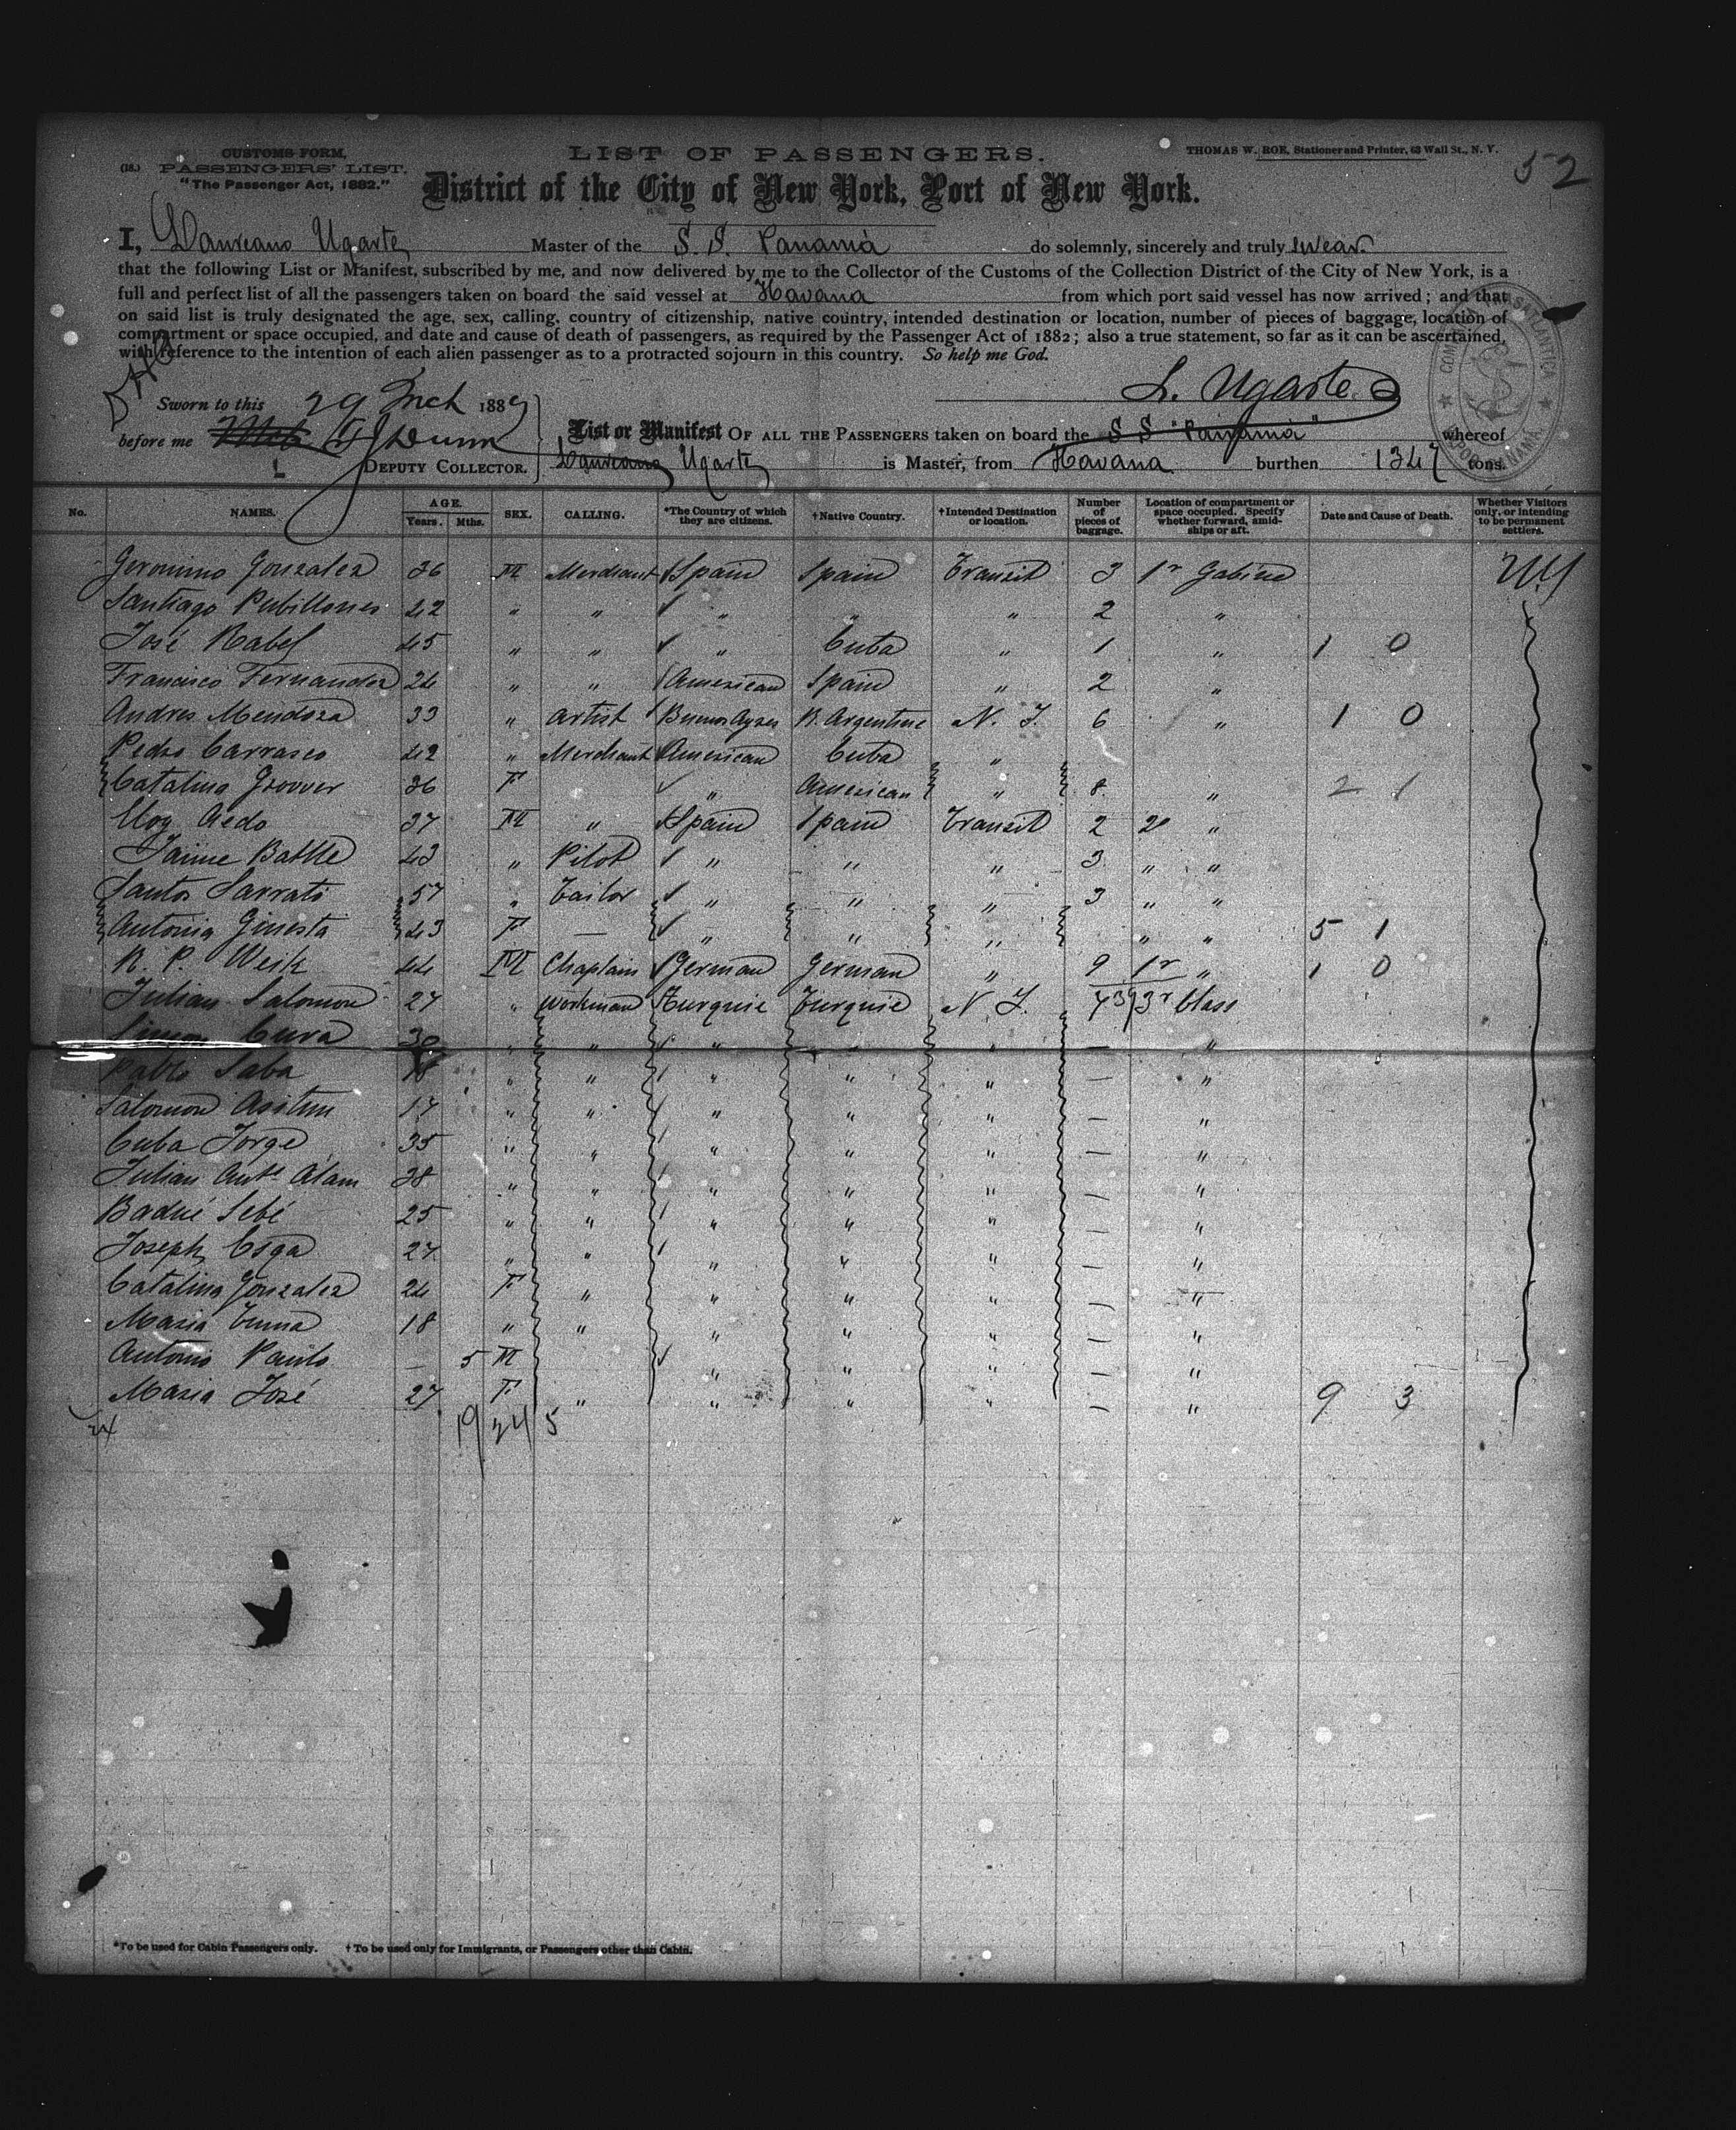 52
CUSTOMS FORM,
(18.) PASSENGERS' LIST.
"The Passenger Act, 1882."
LIST OF PASSENGERS.
THOMAS W. ROE, Stationer and Printer, 63 Wall St., N. Y.
District of the City of New York, Port of New York.
I, Laureano Ugarte Master of the S. S. Panamá do solemnly, sincerely and truly swear
that the following List or Manifest, subscribed by me, and now delivered by me to the Collector of the Customs of the Collection District of the City of New York, is a
full and perfect list of all the passengers taken on board the said vessel at Havana from which port said vessel has now arrived; and that
on said list is truly designated the age, sex, calling, country of citizenship, native country, intended destination or location, number of pieces of baggage, location of
compartment or space occupied, and date and cause of death of passengers, as required by the Passenger Act of 1882; also a true statement, so far as it can be ascertained,
with reference to the intention of each alien passenger as to a protracted sojourn in this country. So help me God.
L. Ugarte
Sworn to this 29 Mch 1889
before me
DEPUTY COLLECTOR.
List or Manifest OF ALL THE PASSENGERS taken on board the S S "Panamá" whereof
Laureano Ugarte is Master, from Havana burthen 1347 tons.
No. NAMES. AGE. Years. Mths. SEX. CALLING. *The Country of which they are citizens. †Native Country. †Intended Destination or location. Number of pieces of baggage. Location of compartment or space occupied. Specify whether forward, amidships or aft. Date and Cause of Death. Whether Visitors only, or intending to be permanent settlers.
Geronimo Gonzalez 36 M Merchant Spain Spain Transit 3 1r Gabine
Santiago Pubillones 42 " " " " " 2 "
José Rabel 45 " " " Cuba " 1 " 1 0
Francisco Fernandez 24 " " American Spain " 2 "
Andres Mendoza 33 " Artist Buenos Ayres R. Argentine N. Y. 6 " 1 0
Pedro Carrasco 42 " Merchant American Cuba "
Catalina Groover 36 F " American " 8 " 2 1
Eloy Aedo 37 M " Spain Spain Transit 2 2a "
Jaime Battle 43 " Pilot " " " 3 " "
Santos Sarrato 57 " Tailor " " " 3 " "
Antonia Ginesta 43 F — " " " " " 5 1
R. P. Weik 44 M Chaplain German German " 9 1r " 1 0
Julian Salomon 27 " Workman Turquie Turquie N. Y. 3r Class
Cura 30 " " " " " — "
Pablo Saba 18 " " " " " — "
Salomon 17 " " " " " — "
Cuba Jorge 35 " " " " " — "
Julian Anto Alam 38 " " " " " — "
Badué Sebé 25 " " " " " — "
Joseph Esga 27 " " " " " — "
Catalina Gonzalez 24 F " " " " — "
Maria 18 " " " " " — "
Antonio — 5 M " " " — "
Maria José 27 F " " " " — " 9 3
24 19 24 5
*To be used for Cabin Passengers only. †To be used only for Immigrants, or Passengers other than Cabin.